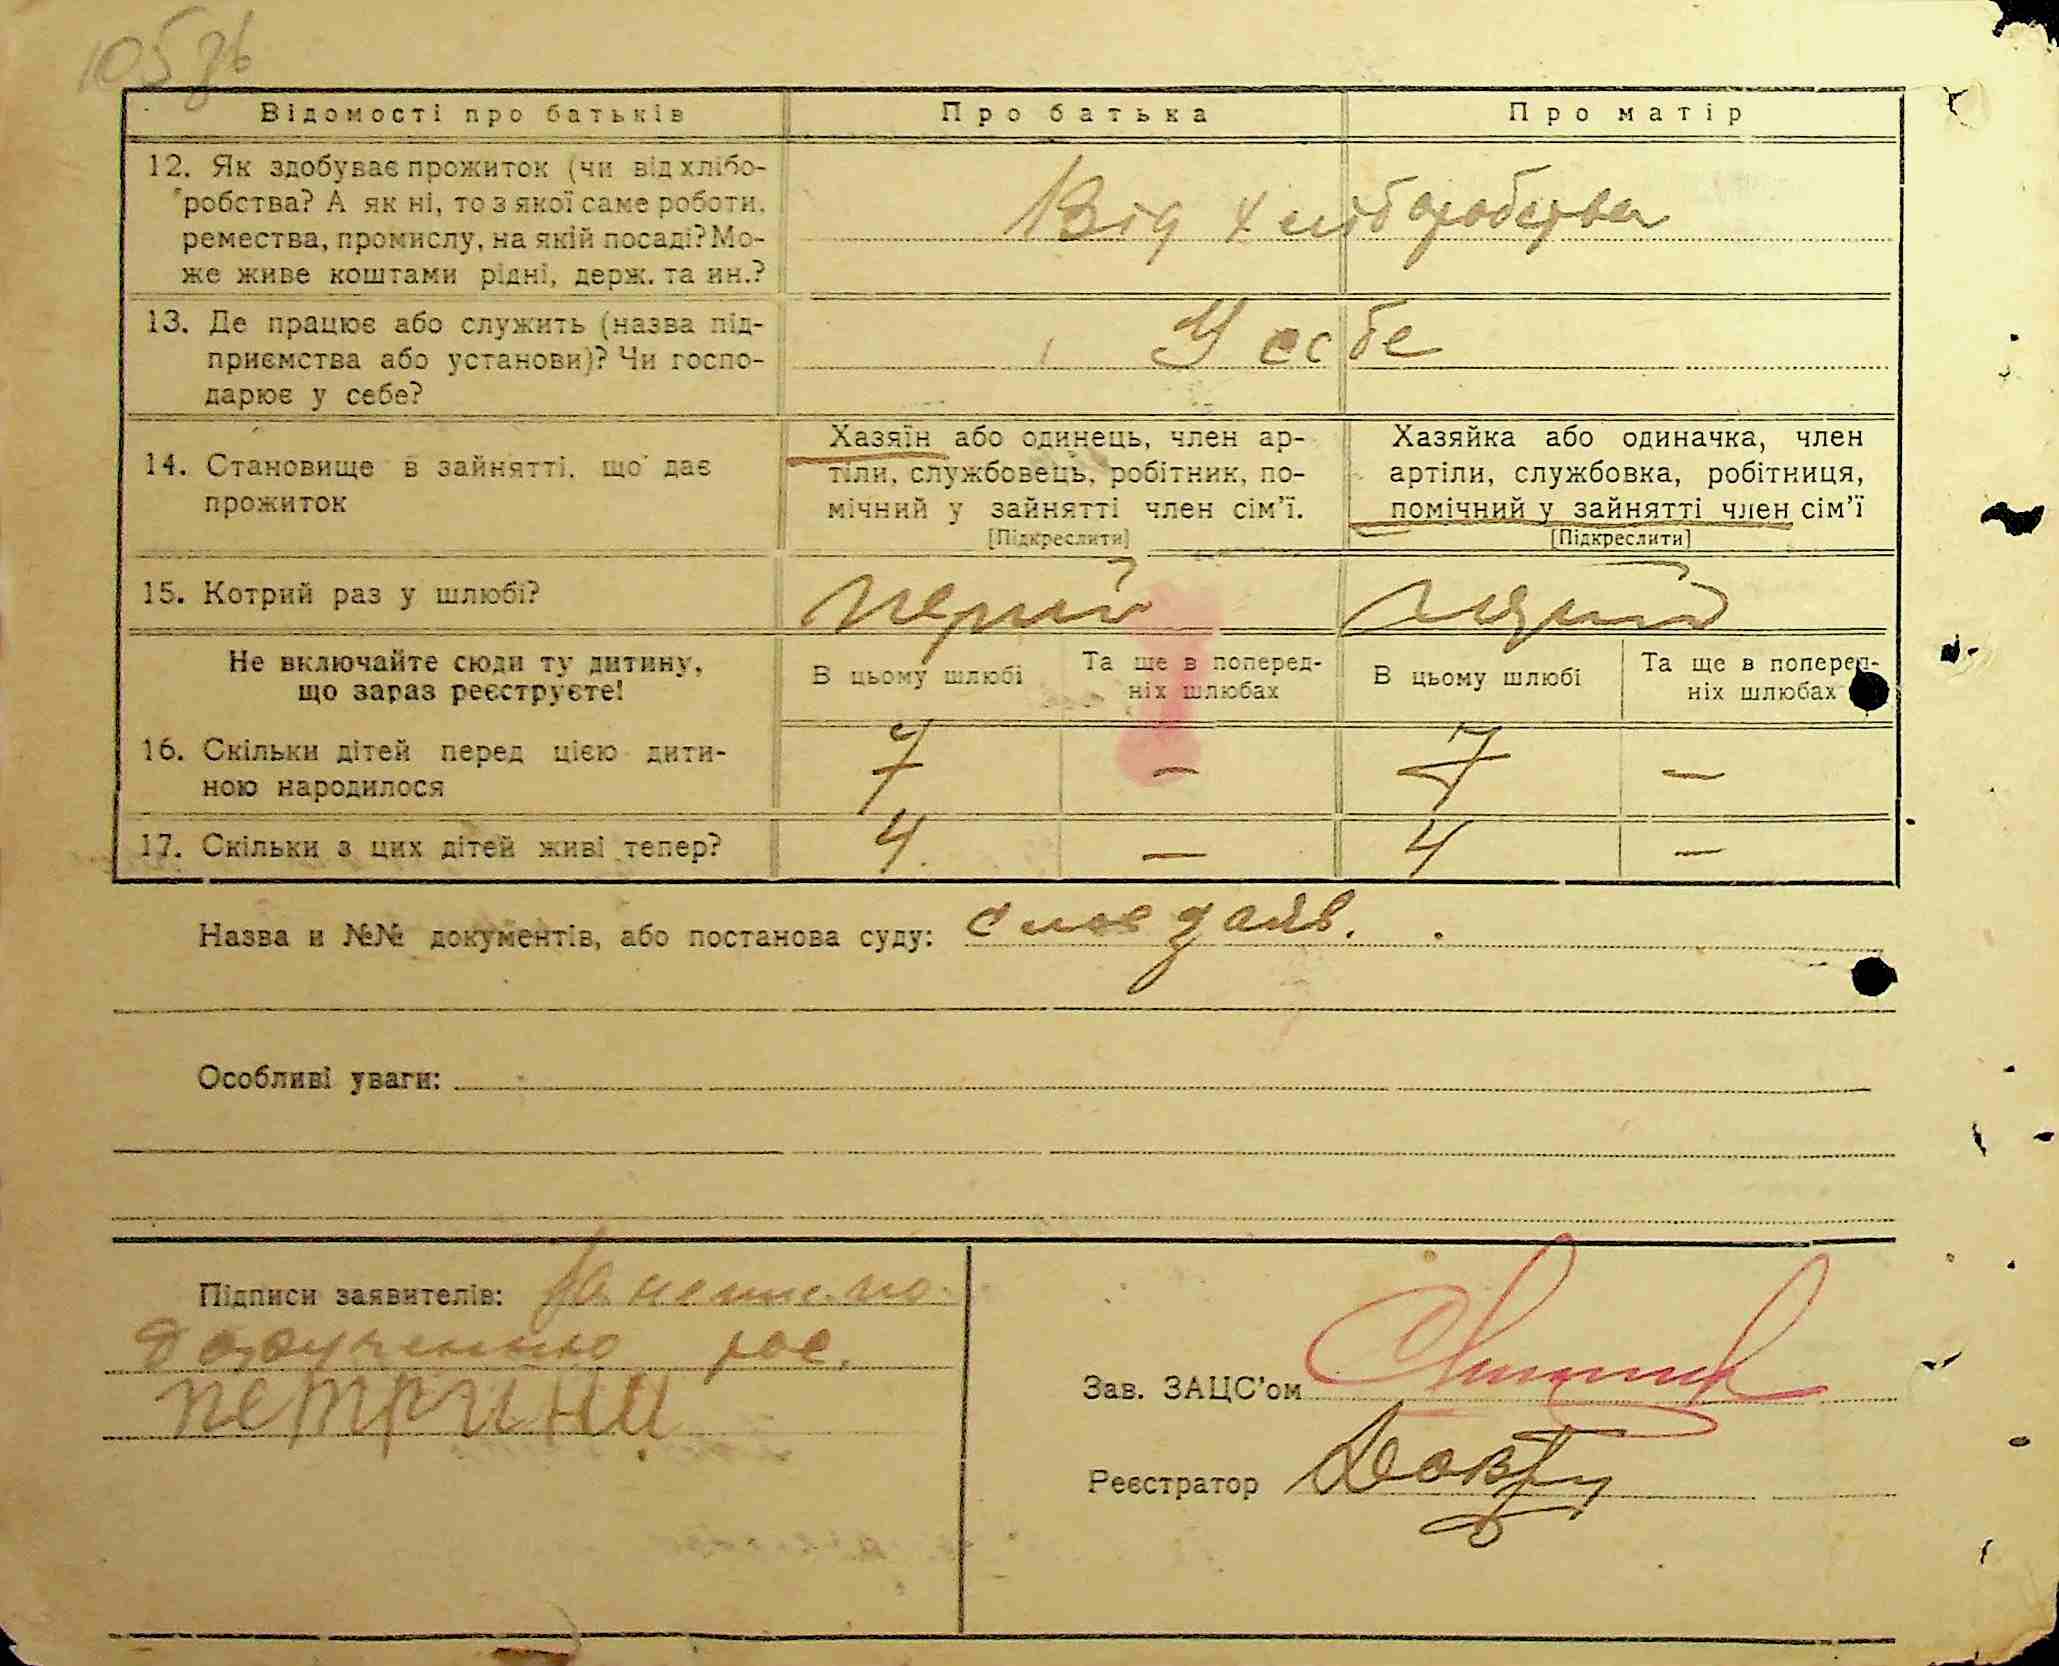 105 зв
Відомості про батьків
Про батька
Про матір
12. Як здобуває прожиток (чи від хлібо-
робства? А як ні, то з якої саме роботи,
ремества, промислу, на якій посаді? Мо-
же живе коштами рідні, держ. та ин.?
Від хліборобства
13. Де працює або служить (назва під-
приємства або установи)? Чи госпо-
дарює у себе?
У себе
14. Становище в зайнятті, що дає
прожиток
Хазяїн або одинець, член ар-
тіли, службовець, робітник, по-
мічний у зайнятті член сім'ї.
[Підкреслити]
Хазяйка або одиначка, член
артіли, службовка, робітниця,
помічний у зайнятті член сім'ї
[Підкреслити]
15. Котрий раз у шлюбі?
Не включайте сюди ту дитину,
що зараз реєструєте!
В цьому шлюбі
Та ще в поперед-
ніх шлюбах
В цьому шлюбі
Та ще в поперед-
ніх шлюбах
16. Скільки дітей перед цією дити-
ною народилося
7 — 7 —
17. Скільки з цих дітей живі тепер?
4. — 4 —
Назва и №№ документів, або постанова суду:
Особливі уваги:
Підписи заявителів: За
дорученню рос.
петрина
Зав. ЗАЦС'ом
Реєстратор